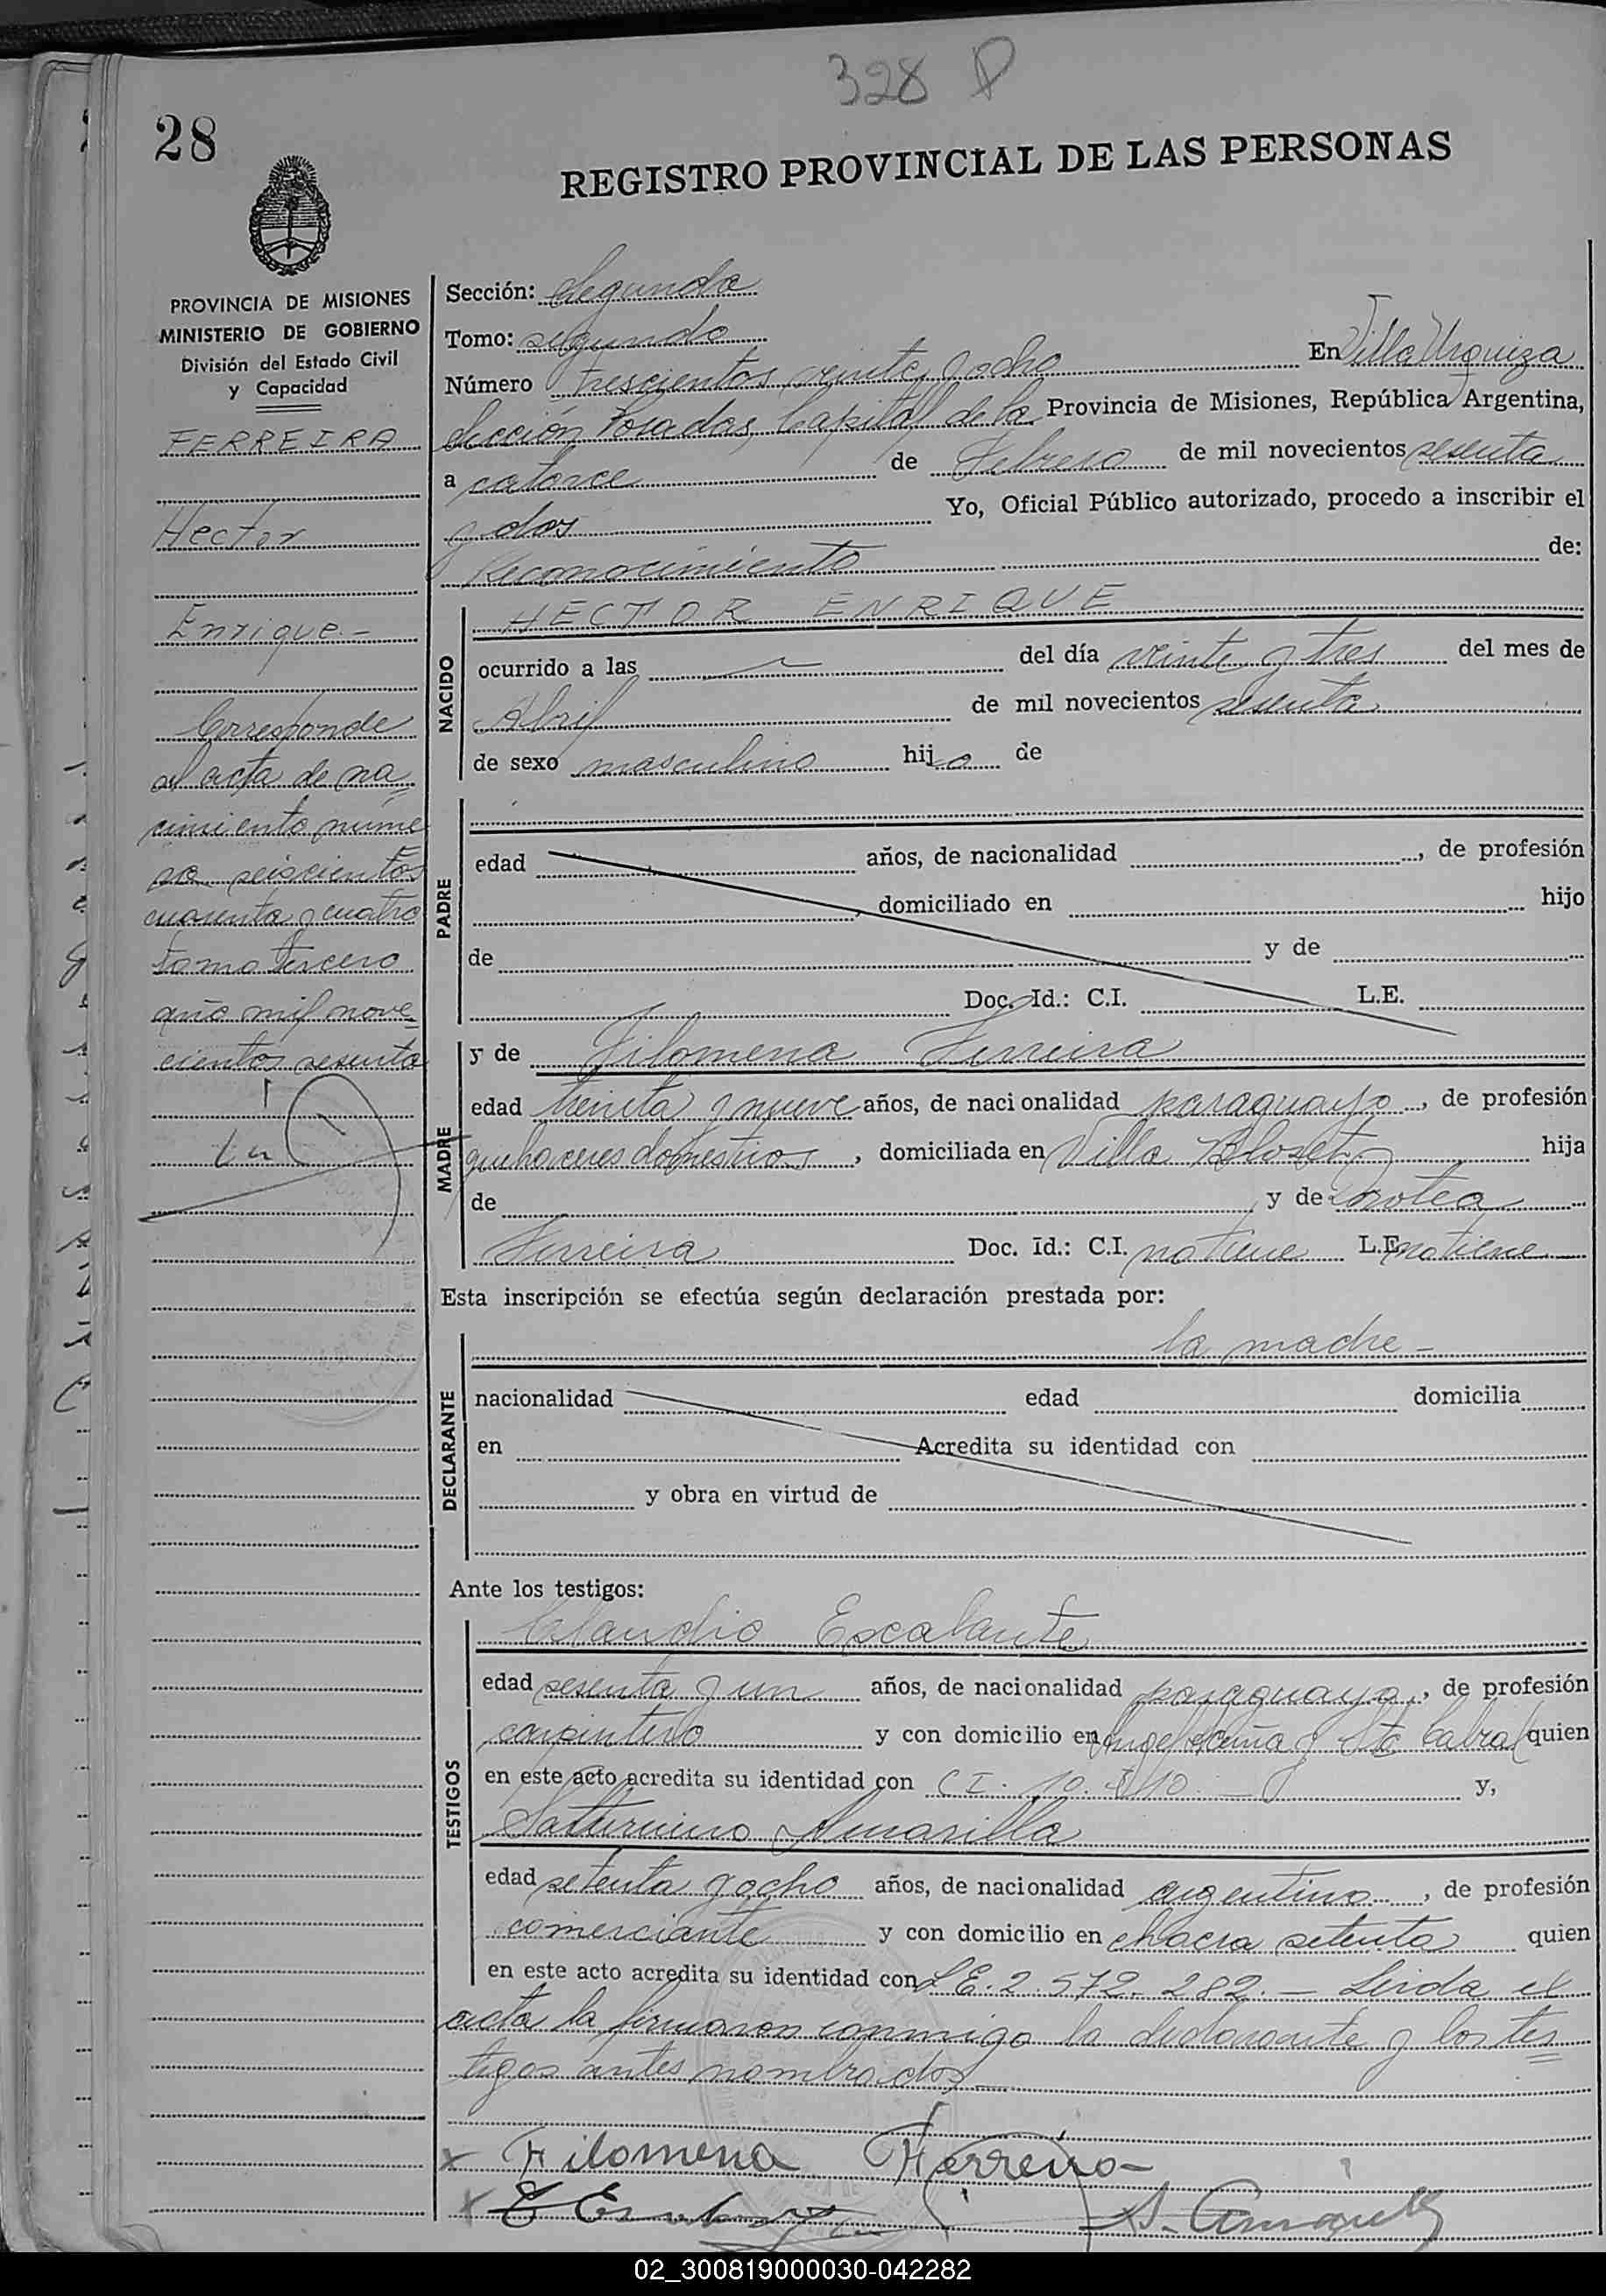 328 P
28
REGISTRO PROVINCIAL DE LAS PERSONAS
PROVINCIA DE MISIONES
MINISTERIO DE GOBIERNO
División del Estado Civil
y Capacidad
FERREIRA
Hector
Enrique.-
Corresponde
al acta de na
cimiento núme
ro seiscientos
cuarenta y cuatro
tomo tercero
año mil nove
cientos sesenta
Sección: Segunda
Tomo: segundo
Número trescientos veinte y ocho En Villa Urquiza
Sección Posadas, Capital de la Provincia de Misiones, República Argentina,
a catorce de Febrero de mil novecientos sesenta
y dos Yo, Oficial Público autorizado, procedo a inscribir el
Reconocimiento de:
NACIDO
HECTOR ENRIQUE
ocurrido a las del día veinte y tres del mes de
Abril de mil novecientos sesenta
de sexo masculino hijo de
PADRE
edad años, de nacionalidad , de profesión
domiciliado en hijo
de y de
Doc. Id.: C.I. L.E.
MADRE
y de Filomena Ferreira
edad treinta y nueve años, de nacionalidad paraguaya, de profesión
quehaceres domésticos, domiciliada en Villa Blosset hija
de y de Dorotea
Ferreira Doc. Id.: C.I. no tiene L.E. no tiene
Esta inscripción se efectúa según declaración prestada por:
DECLARANTE
la madre -
nacionalidad edad domicilia
en Acredita su identidad con
y obra en virtud de
Ante los testigos:
TESTIGOS
Claudio Escalante
edad sesenta y un años, de nacionalidad paraguaya, de profesión
carpintero y con domicilio en Angel Acuña y Sto Cabral quien
en este acto acredita su identidad con C I. y,
Satturnino Amarilla
edad setenta y ocho años, de nacionalidad argentino, de profesión
comerciante y con domicilio en chacra setenta quien
en este acto acredita su identidad con L E. 2.572.282.- Leida el
acta la firmaron conmigo la declarante y los tes
tigos antes nombrados
x Filomena Ferreiro-
x
02_300819000030-042282